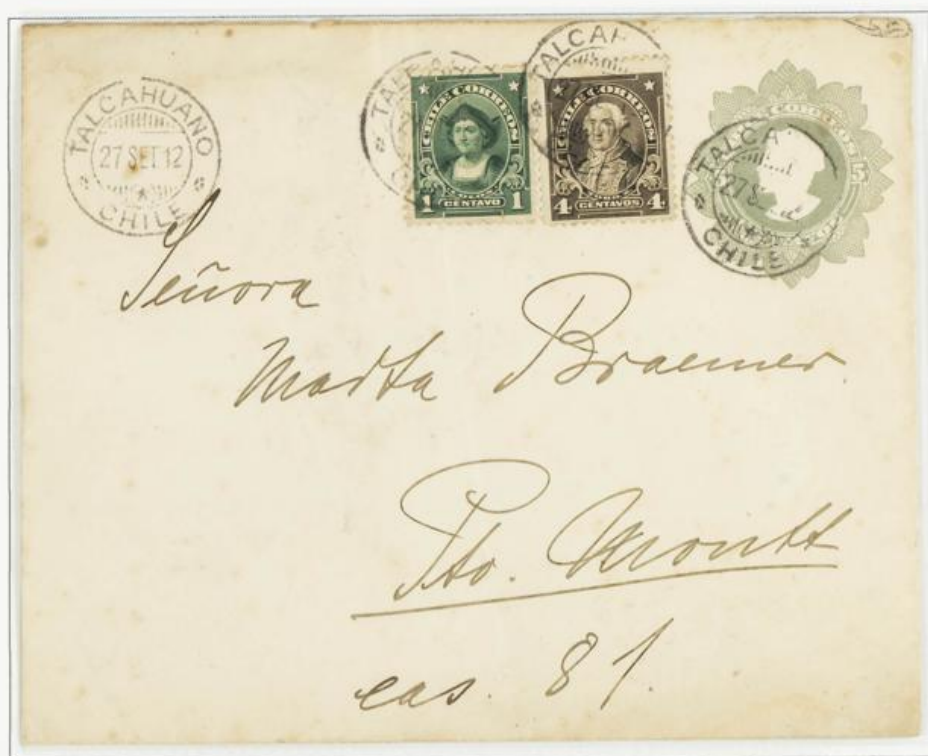 TALCAHUANO
27 SET. 12
CHILE
TALCA
CHILE CORREOS
1 CENTAVO 1
TALCAH
CHILE CORREOS
4 CENTAVOS 4
TALCA
27 S
CHILE
5
Señora
Marta Braemer
Pto. Montt
cas. 81.